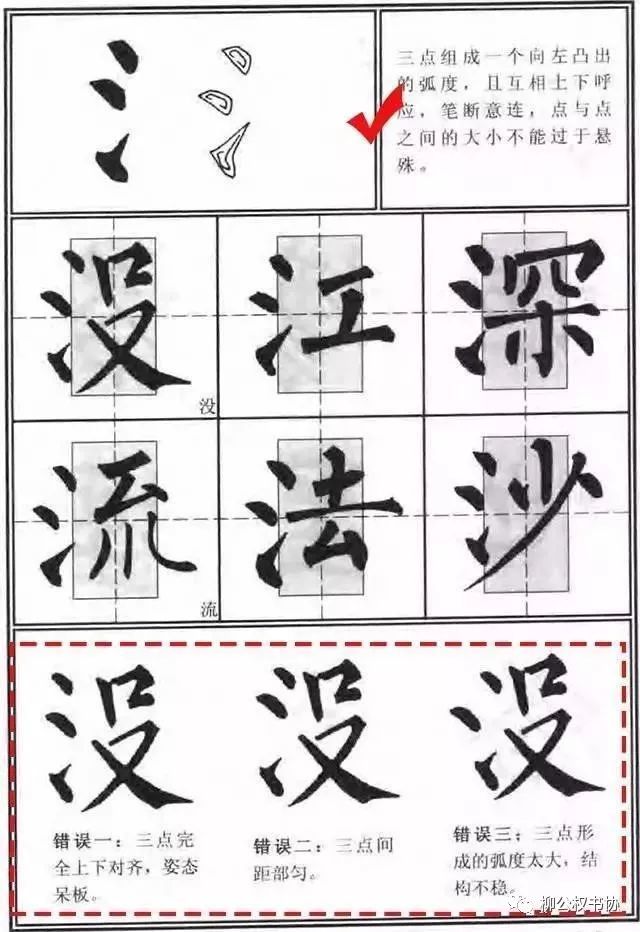 氵
三点组成一个向左凸出
的弧度，且互相上下呼
应，笔断意连，点与点
之间的大小不能过于悬
殊。
没 江 深
没
流 法 沙
流
没 没 没
错误一：三点完
全上下对齐，姿态
呆板。
错误二：三点间
距部匀。
错误三：三点形
成的弧度太大，结
构不稳。
柳公权书协